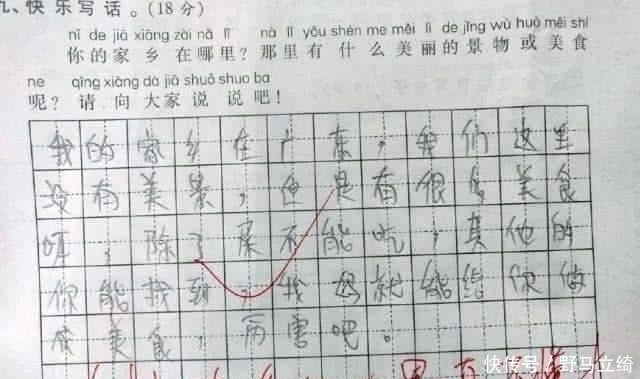 九、快乐写话。(18分)
nǐ de jiā xiāng zài nǎ lǐ nà lǐ yǒu shén me měi lì de jǐng wù huò měi shí
你的家乡在哪里?那里有什么美丽的景物或美食
ne qǐng xiàng dà jiā shuō shuo ba
呢?请向大家说说吧!
我的家乡在广东,我们这里
没有美景,但是有很多美食
,除了不能吃,其他的
你能找到,我妈就能给你做
成美食,厉害吧。
快传号/野马立绮